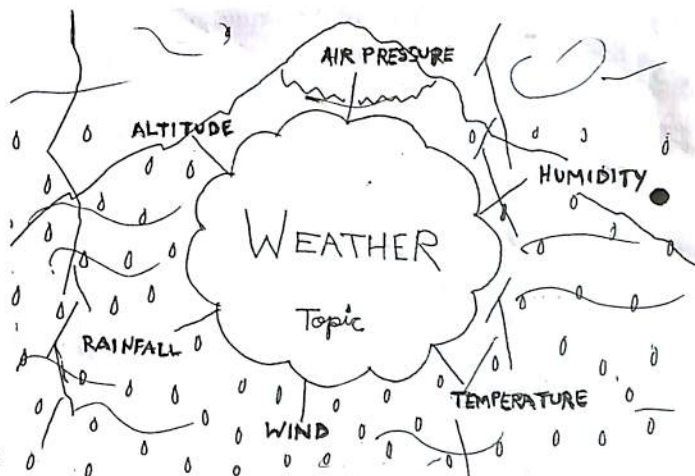 AIR PRESSURE
ALTITUDE
HUMIDITY
WEATHER
Topic
RAINFALL
TEMPERATURE
WIND